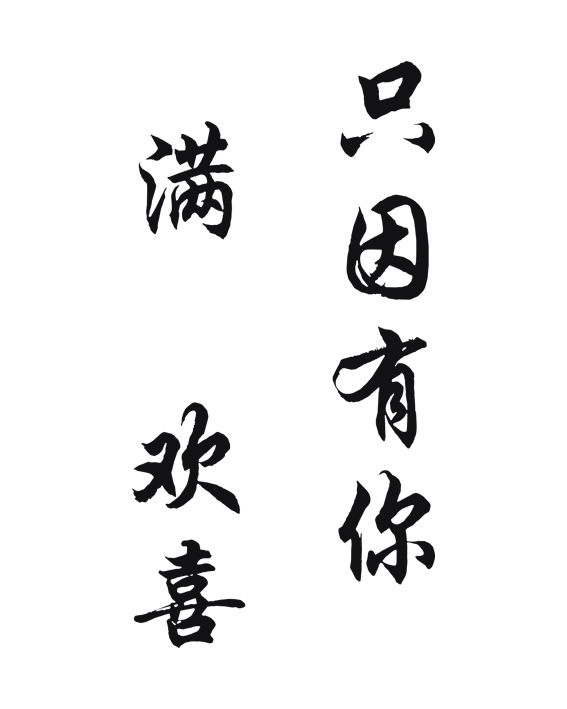 只因有你
满 欢喜